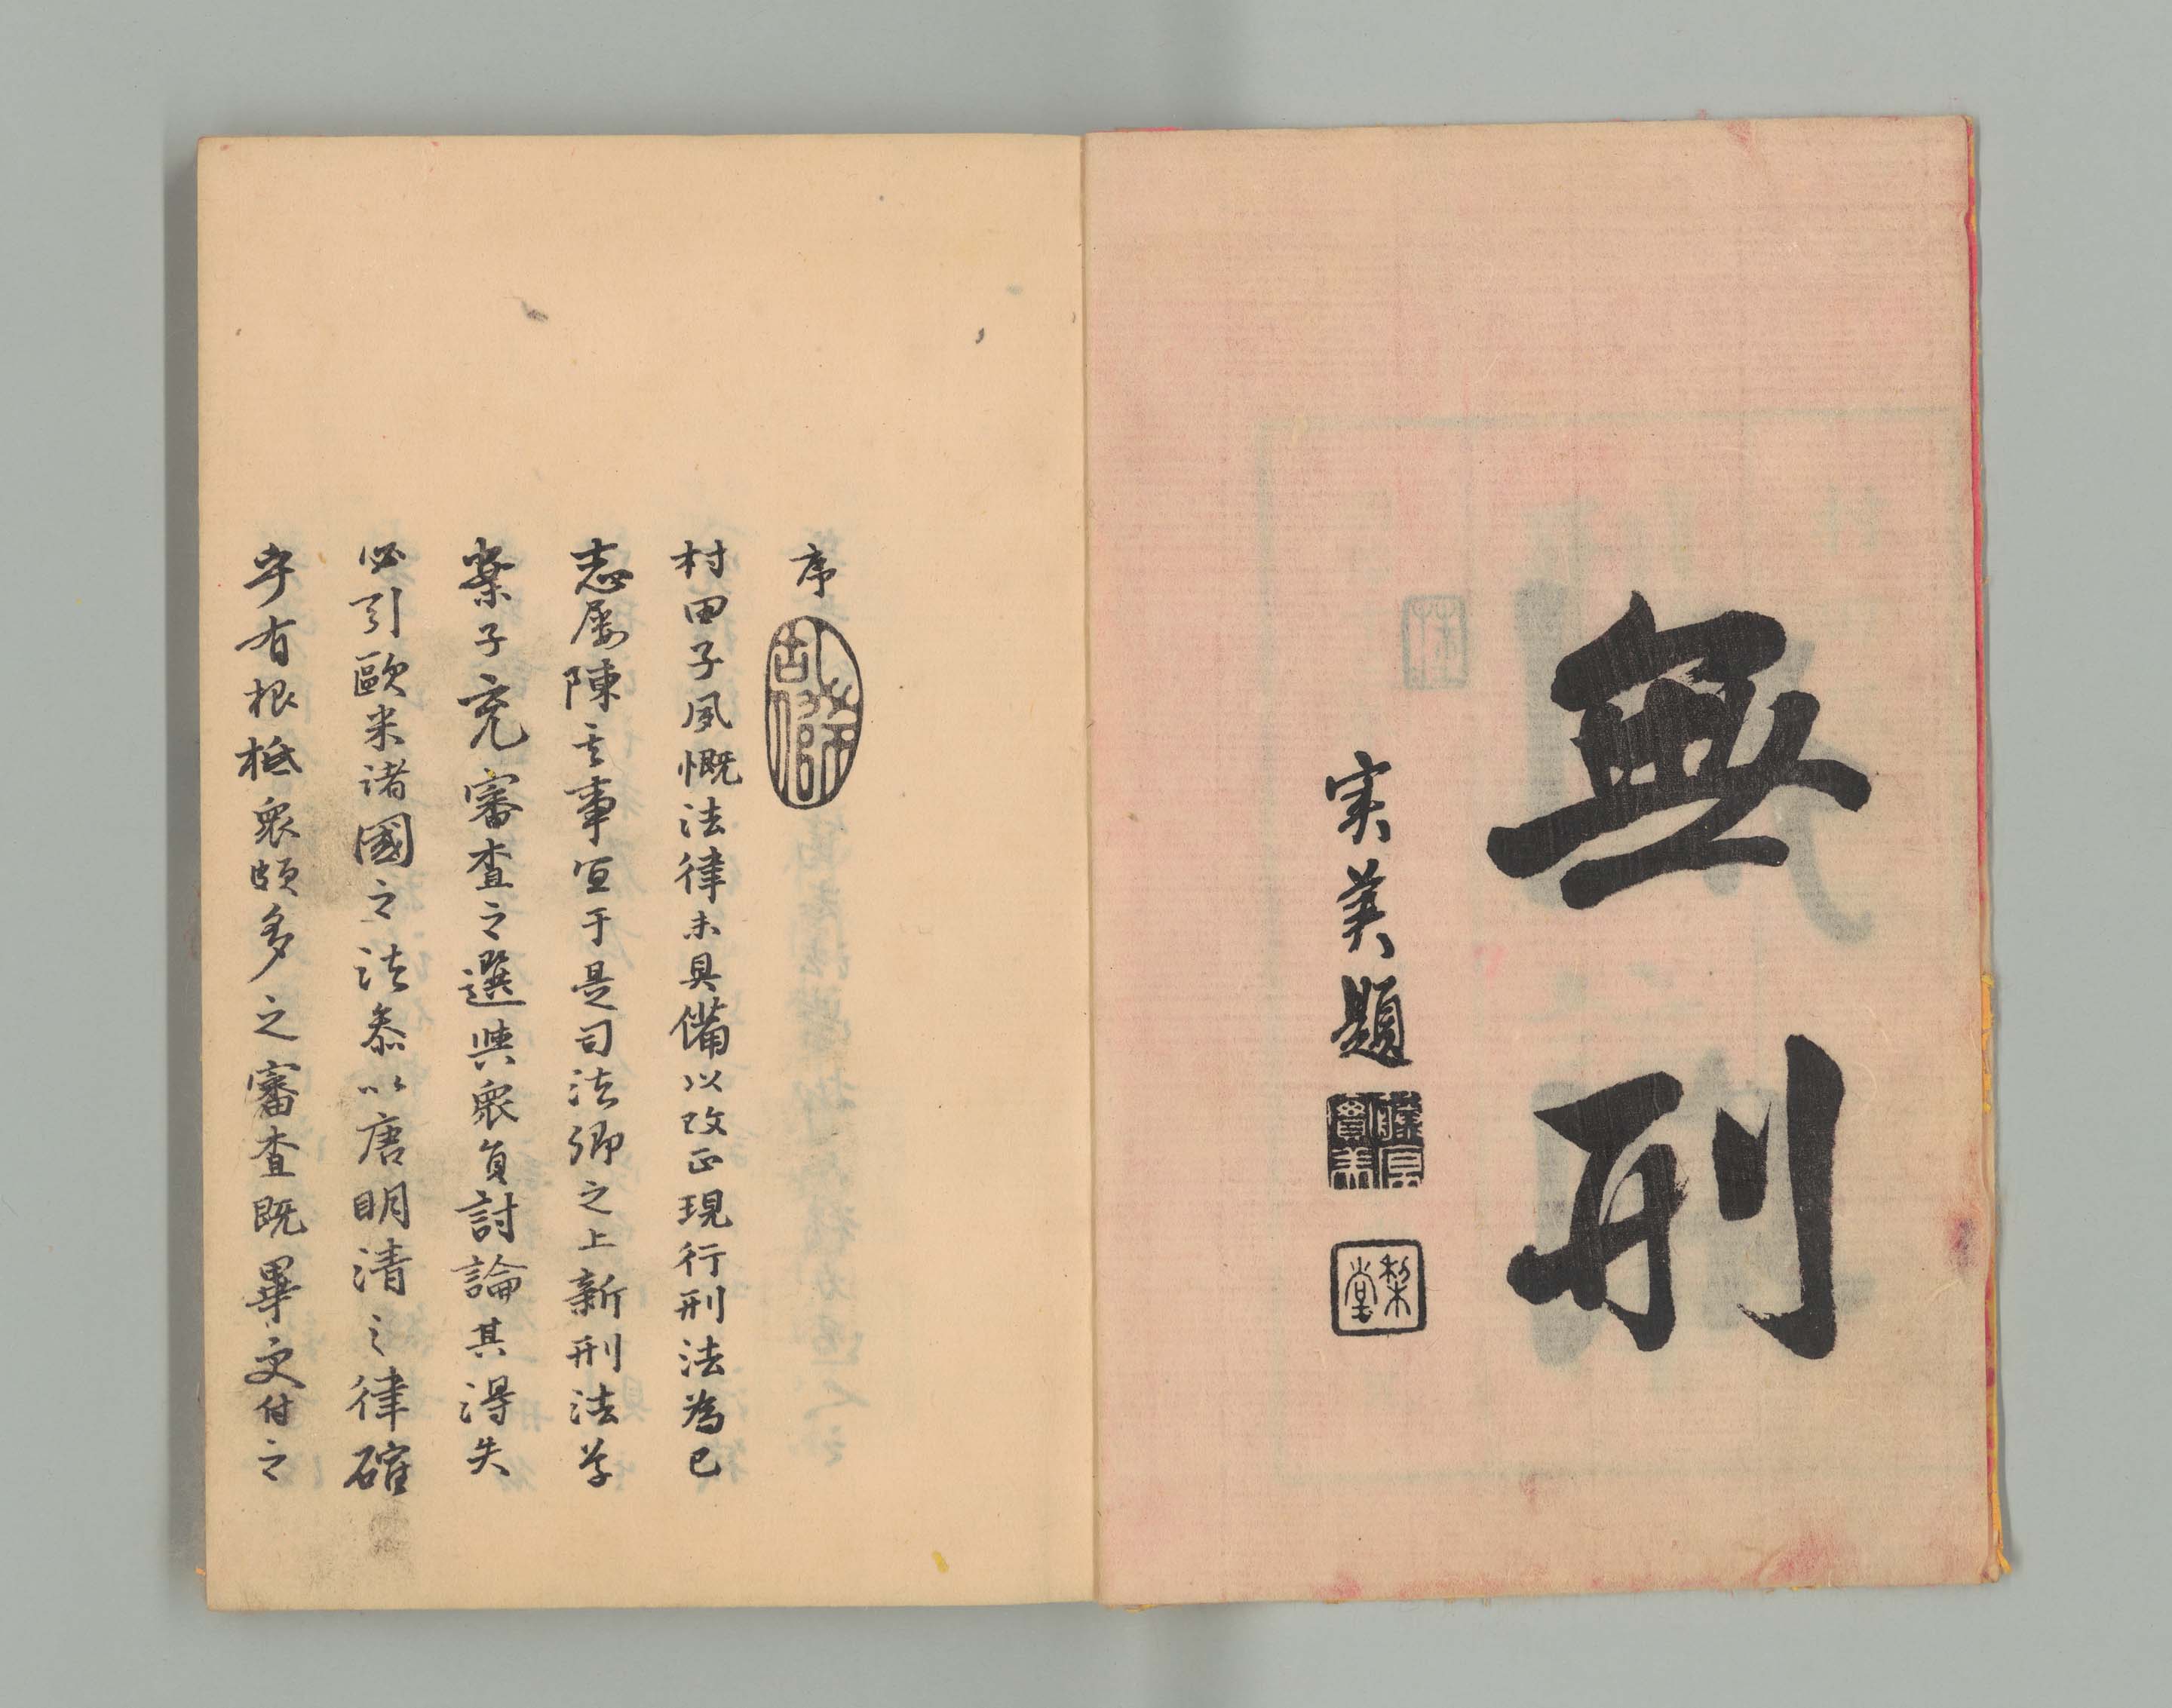 無刑
実美題
藤原實美
梨堂
序
村田子夙慨法律未具備以改正現行刑法為己
志屡陳其事宜于是司法卿之上新刑法草
案子充審査之選與衆員討論其得失
必引歐米諸國之法参以唐明清之律確
乎有根柢衆頗多之審査既畢交付之